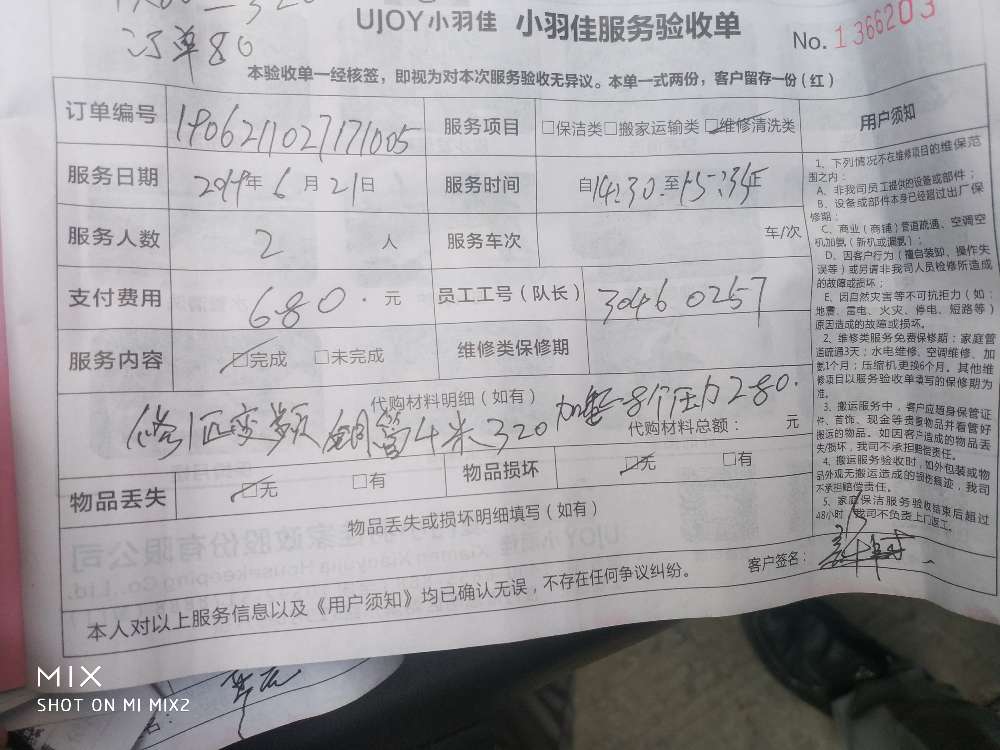 订单80
UJOY小羽佳 小羽佳服务验收单
No. 1366203
本验收单一经核签，即视为对本次服务验收无异议。本单一式两份，客户留存一份（红）
订单编号 1906211027171005 服务项目 □保洁类□搬家运输类□维修清洗类 用户须知
服务日期 2019年6月21日 服务时间 自14:30至15:34止
服务人数 2 人 服务车次 车/次
支付费用 680.元 员工工号（队长） 30460257
服务内容 □完成 □未完成 维修类保修期
代购材料明细（如有）
修1匹变频 铜管4米320 加 8个压力280.
代购材料总额： 元
物品丢失 □无 □有 物品损坏 □无 □有
物品丢失或损坏明细填写（如有）
客户签名：
本人对以上服务信息以及《用户须知》均已确认无误，不存在任何争议纠纷。
1、下列情况不在维修项目的维保范
围之内：
A、非我司员工提供的设备或部件；
B、设备或部件本身已经超过出厂保
修期；
C、商业（商铺）管道疏通、空调空
机加氨（新机或漏氨）；
D、因客户行为（擅自装卸、操作失
误等）或另请非我司人员检修所造成
的故障或损坏；
E、因自然灾害等不可抗拒力（如：
地震、雷电、火灾、停电、短路等）
原因造成的故障或损坏。
2、维修类服务免费保修期：家庭管
道疏通3天；水电维修、空调维修、加
氨1个月；压缩机更换6个月。其他维
修项目以服务验收单填写的保修期为
准。
3、搬运服务中，客户应随身保管证
件、首饰、现金等贵重物品并看管好
搬运的物品。如因客户造成的物品丢
失/损坏，我司不承担赔偿责任。
4、搬运服务验收时，如外包装或物
品外观无搬运造成的损伤痕迹，我司
不承担赔偿责任。
5、家庭保洁服务验收结束后超过
48小时，我司不负责上门返工。
MIX
SHOT ON MI MIX2